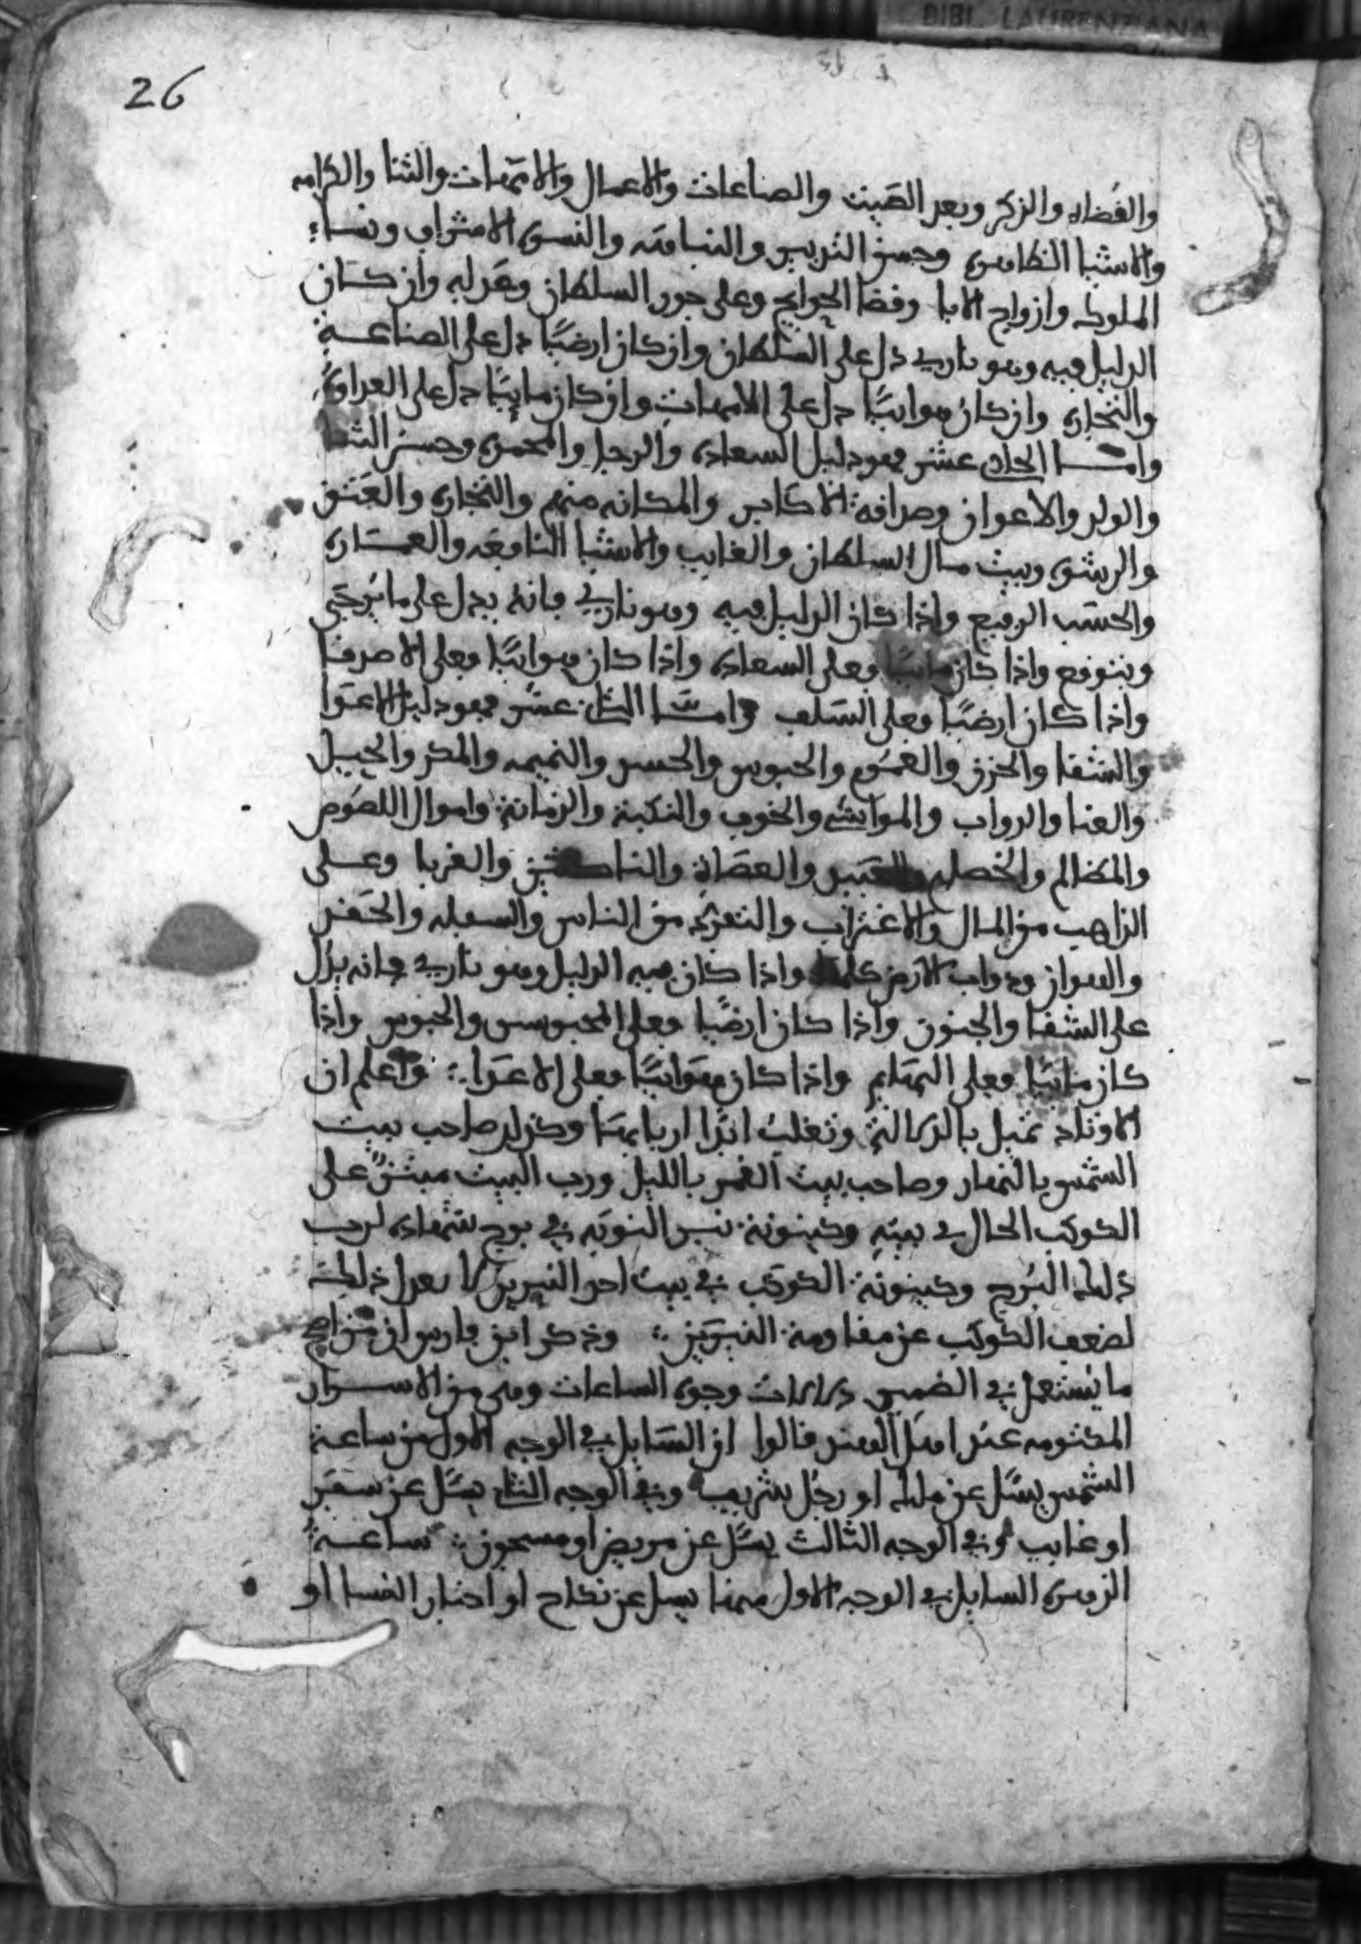 BIBL. LAURENZIANA
26
والقضاه والذكر وبعد الصيت والصناعات والاعمال والامهات والثنا والكرامه
والاشيا الظاهره وحسن التدبير والنباهه والنسوه الاشراف ونساء
الملوك وازواج الابا وقضا الحوايج وعلى جور السلطان وعدله وان كان
الدليل فيه وهو ناري دل على السلطان وان كان ارضيا دل على الصناعة
والتجاره وان كان هوائيا دل على الامهات وان كان مائيا دل على العداوة
واما الحادي عشر فهو دليل السعاده والرجا والمحمده وحسن الثنا
والولد والاعوان وصداقة الاكابر والمكانه منهم والتجاره والعشق
والرشوه وبيت مال السلطان والغايب والاشيا النافعه والعماره
والحسب الرفيع واذا كان الدليل فيه وهو ناري فانه يدل على ما يرتجى
ويتوقع واذا كان مائيا فعلى السعاده واذا كان هوائيا فعلى الاصدقا
واذا كان ارضيا فعلى السلف واما الثاني عشر فهو دليل الاعدا
والشقا والحزن والغموم والحبوس والحسد والنميمه والمكر والحيل
والعنا والدواب والمواشي والخوف والنكبة والزمانة واموال اللصوص
والمظالم والعصاة والغربا وعلى
الذاهب من المال والاغتراب من الناس والسفله والحقد
والهوان ودواب الارض كلها واذا كان فيه الدليل وهو ناري فانه يدل
على الشقا والجنون واذا كان ارضيا فعلى المحبوسين والحبوس واذا
كان مائيا فعلى البهايم واذا كان هوائيا فعلى الاعدا ؛ واعلم ان
الاوتاد وتغلب ابدا اربابها وكذلك صاحب بيت
الشمس بالنهار وصاحب بيت القمر بالليل ورب البيت على
الكوكب الحال في بيته وكينونة في برج شهاده لرب
ذلك البرج وكينونة الكوكب في بيت احد النيرين لا يعدل ذلك
لضعف الكوكب عن مقاومة النيرين ؛ وذكر ابن
ما يستعمل في الضمير دلالات وجوه الساعات وهي من الاسرار
المكتومه عند اهل الهند قالوا ان السايل في الوجه الاول من ساعة
الشمس يسل عن ملك او رجل شريف وفي الوجه الثاني يسل عن سفر
او غايب وفي الوجه الثالث يسل عن مريض او مسجون ؛ ساعة
الزهره السايل في الوجه الاول منها يسل عن نكاح او اخبار النسا او